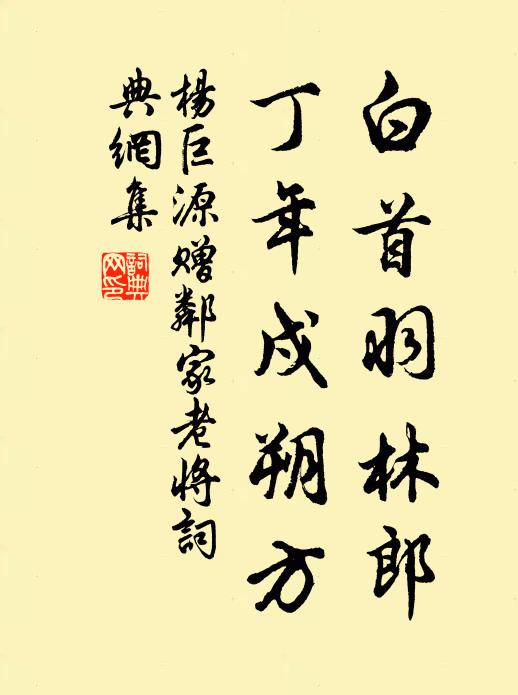 白首羽林郎
丁年戍朔方
楊巨源贈鄰家老將詞
典網集
詞典
网印